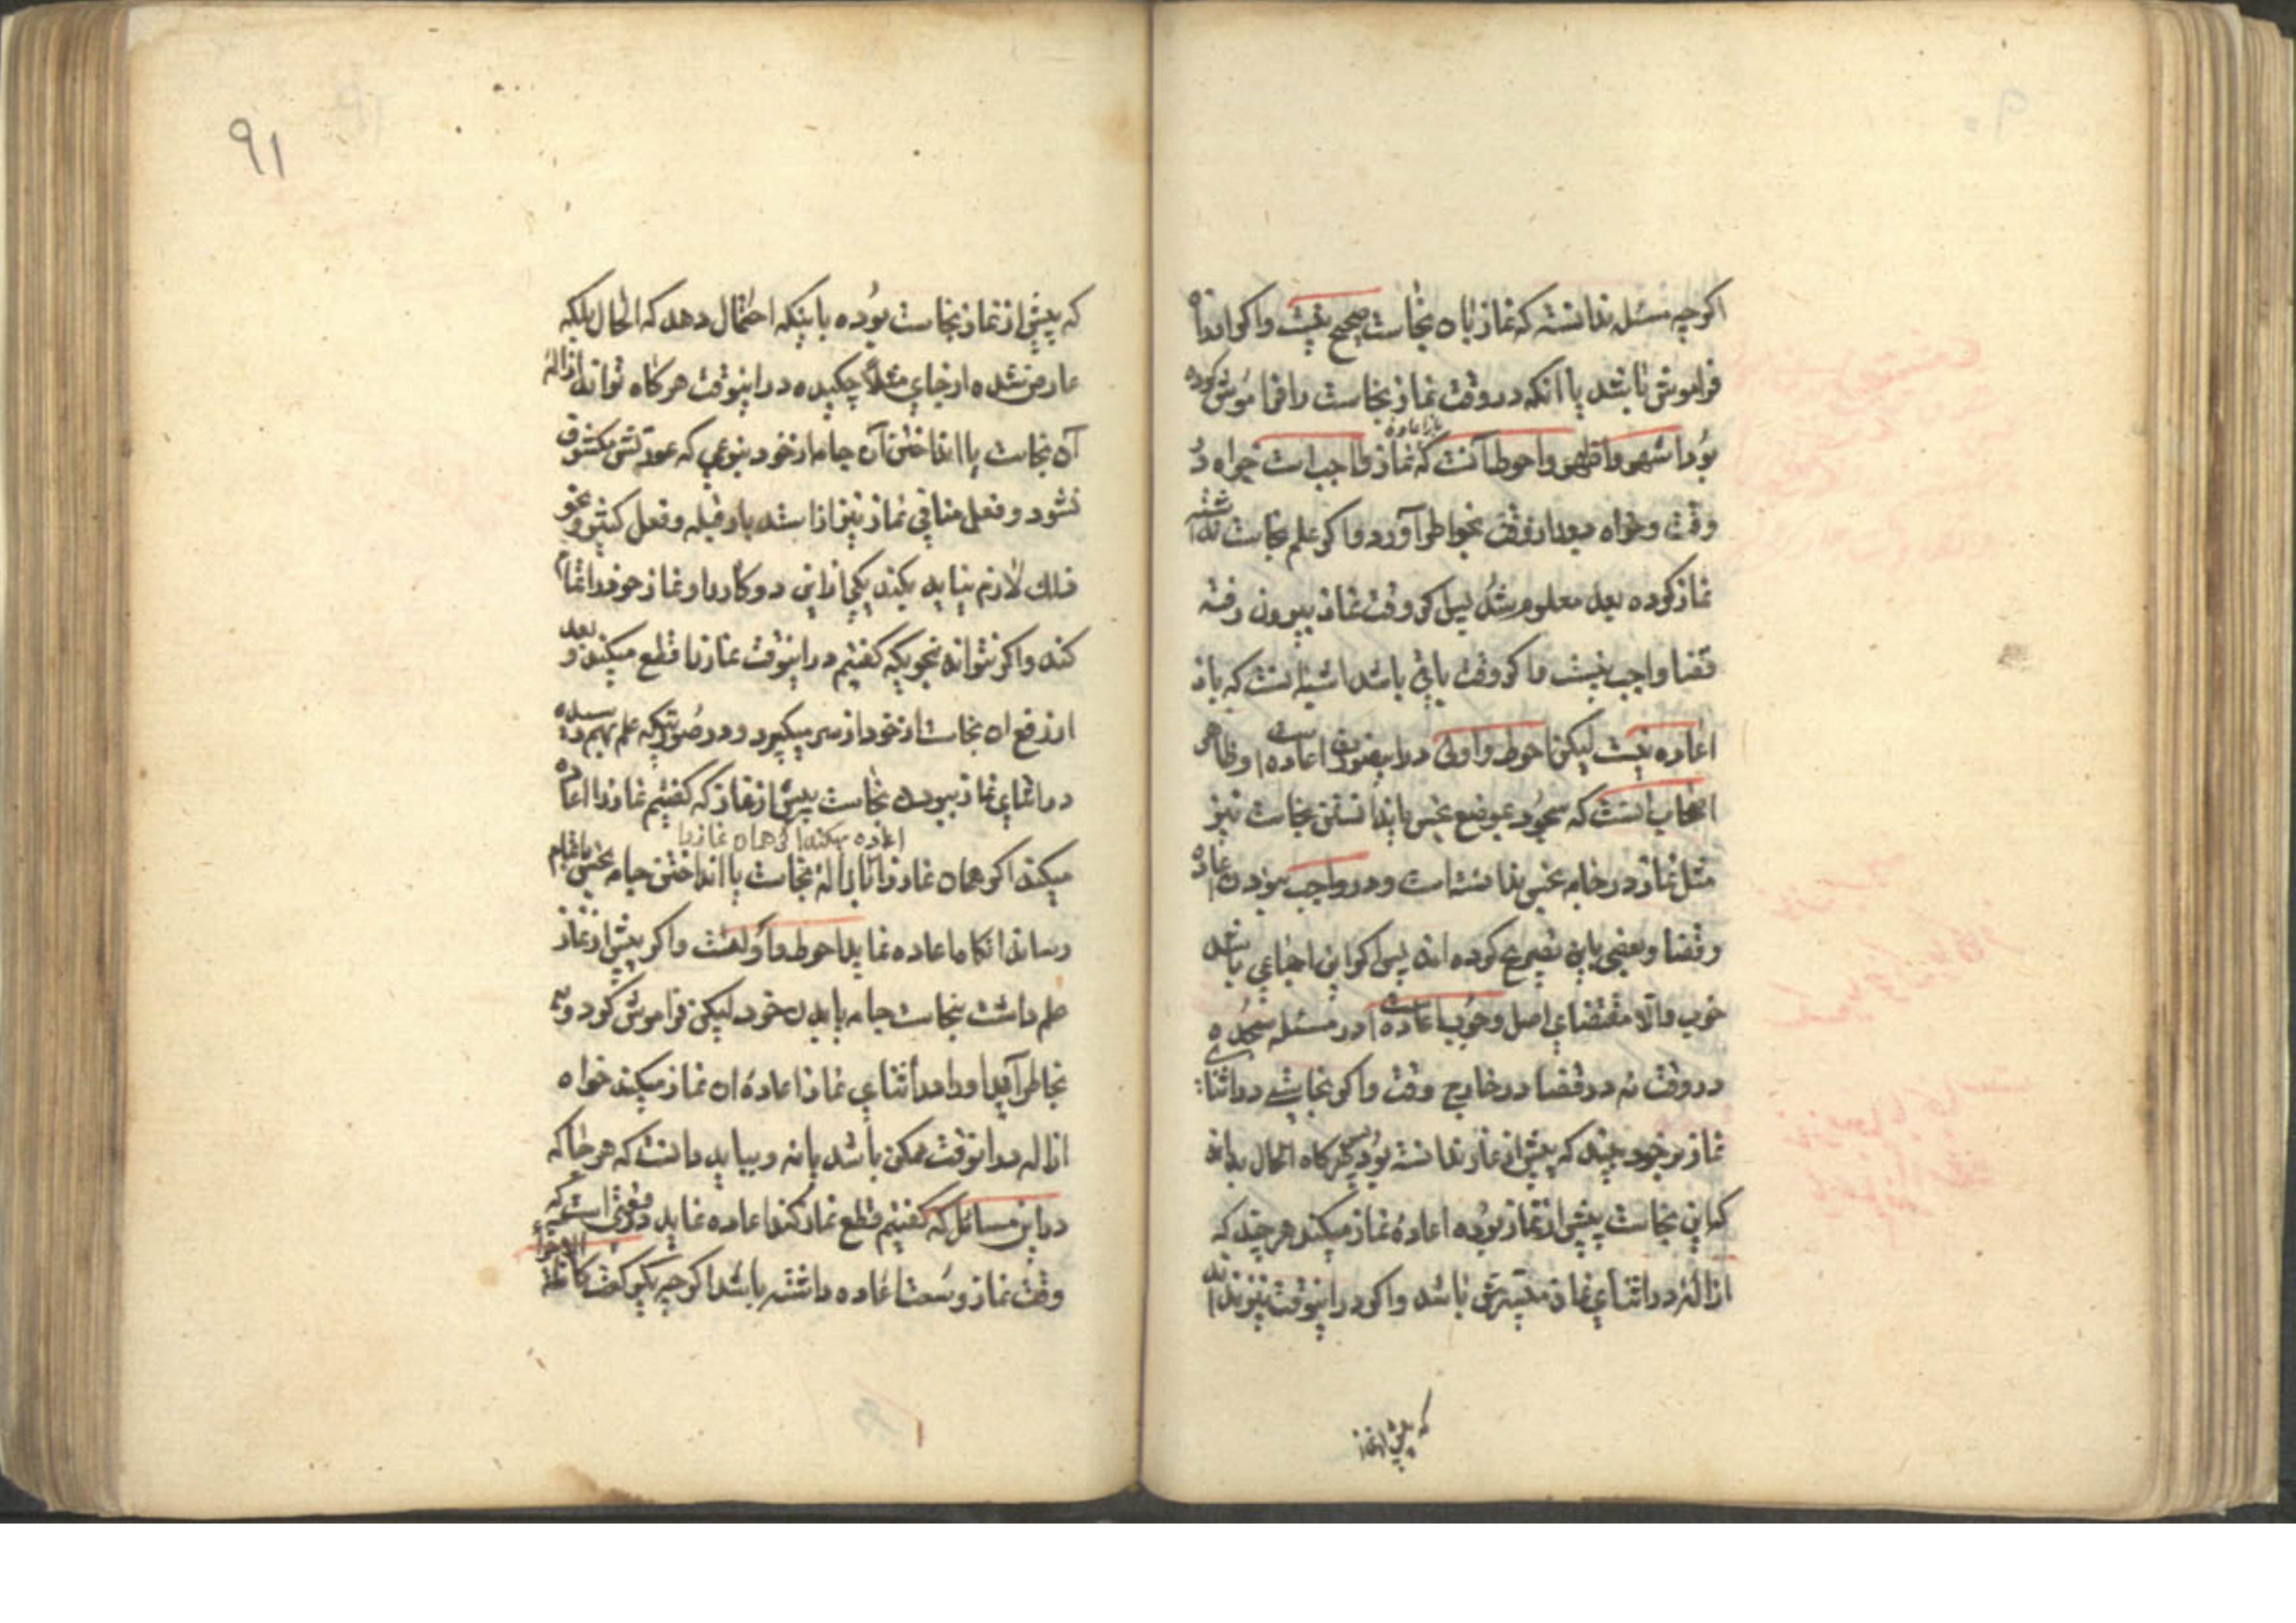 اگرچه مسئله ندانسته که نماز بان نجاست صحیح نیست و اگر انرا
فراموش باشد یا انکه در وقت نماز نجاست را فراموش کرده
بود اشهر و اظهر و احوط آنست که نماز واجب است خواه در
وقت و خواه بعد از وقت بخواطر آورد و اگر علم نجاست نداشته
نماز کرده بعد معلوم شد پس اگر وقت نماز بیرون رفته
قضا واجب نیست و اگر وقت باقی باشد اشبه انست که باز
اعاده نیست لیکن احوط و اولی در اینصورت اعاده است و ظاهر
اصحاب انست که سجود بموضع نجس باندانستن نجاست نیز
مثل نماز در جامه نجس ندانسته است و در واجب نبودن اعاده
و قضا و بعضی باین تصریح کرده اند پس اگر این اجماعی باشد
خوب و الا مقتضای اصل وجوب اعاده است در مسئله سجده
در وقت نه در قضا در خارج وقت و اگر نجاستی در اثنای
نماز بر خود بیند که پیش از نماز ندانسته بود پس هرگاه الحال بداند
که این نجاست پیش از نماز بوده اعاده نماز میکند هر چند که
ازاله در اثنای نماز میسرش باشد و اگر در اینوقت نیز نداند
که پیش از نماز
۹۱
که پیش از نماز نجاست بوده باینکه احتمال دهد که الحال بلکه
عارض شده از جای مثلا چکیده در اینوقت هرگاه تواند ازاله
آن نجاست یا انداختن آن جامه از خود بنوعی که عورتش مکشوف
نشود و فعل منافی نماز نیز از استدبار قبله و فعل کثیر و نحو
ذلک لازم نیاید بکند یکی از این دو کار را و نماز خود را تمام
کند و اگر نتواند بنحویکه گفتیم در اینوقت نماز را قطع میکند و بعد
از رفع ان نجاست از خود از سر میگیرد و در صورتیکه علم بهم رسیده
در اثنای نماز ببودن نجاست پیش از نماز که گفتیم نماز را اعاده
اعاده میکند اگر همان نماز را
میکند اگر همان نماز را با ازاله نجاست یا انداختن جامه نجس باتمام
رساند انگاه اعاده نماید احوط و اولیست و اگر پیش از نماز
علم داشت بنجاست جامه یا بدن خود لیکن فراموش کرد و
بخاطر آید او را در اثنای نماز اعاده ان نماز میکند خواه
ازاله در انوقت ممکن باشد یا نه و بباید دانست که هر جا که
در این مسائل که گفتیم قطع نماز کند اعاده نماید در وقتی است که
وقت نماز وسعت اعاده داشته باشد اگرچه بیک رکعت